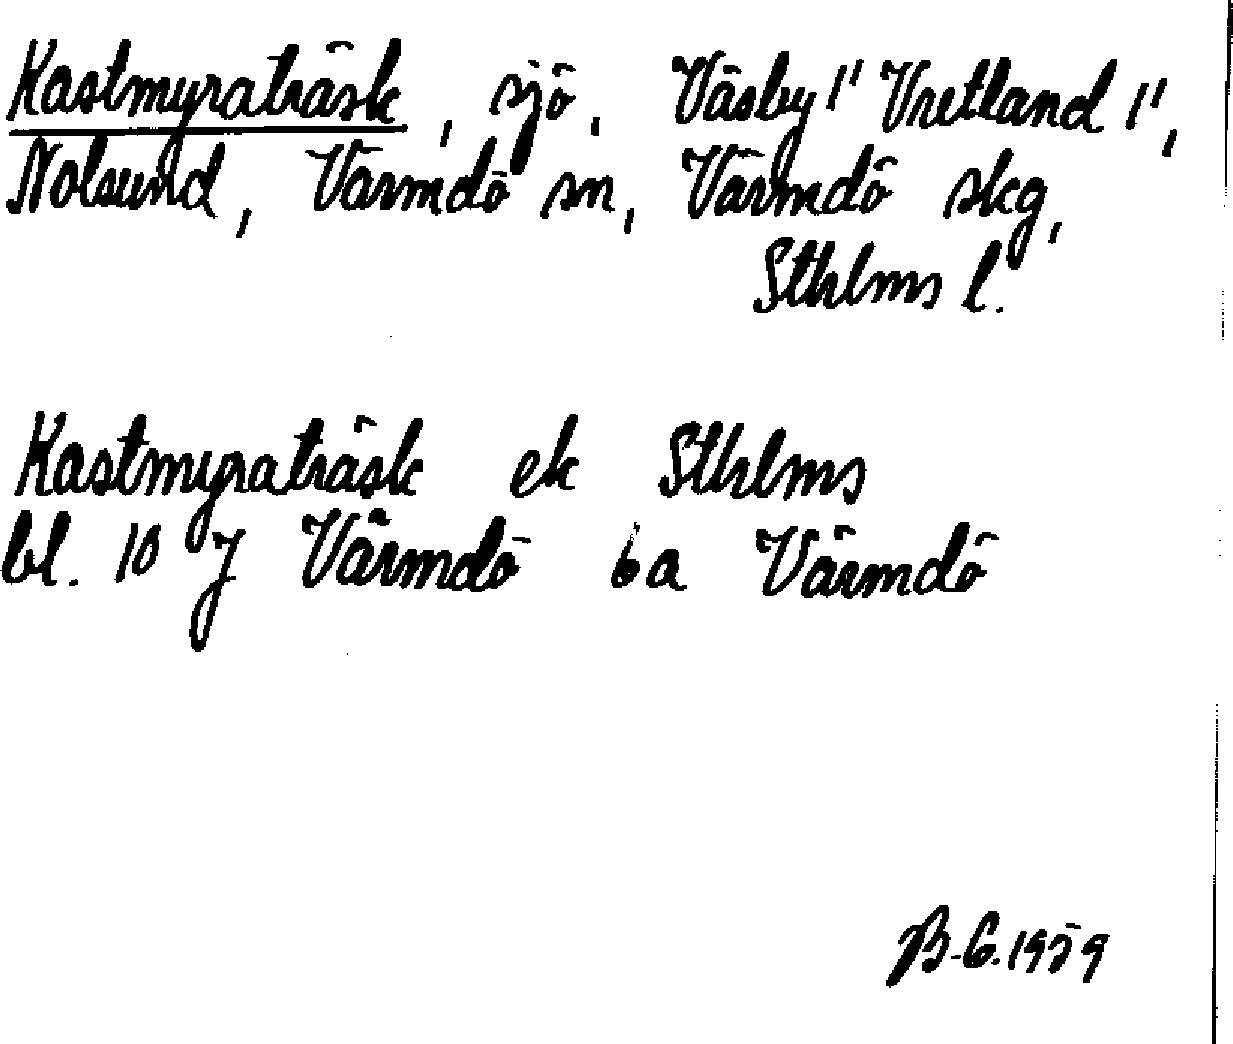 Kastmyraträsk, sjö, Väsby 1' Vretland 1',
Nolsund, Värmdö sn, Värmdö skg,
Sthlms l.
Kastmyraträsk ek Sthlms
bl. 10 J Värmdö 6a Värmdö
B-G. 1959